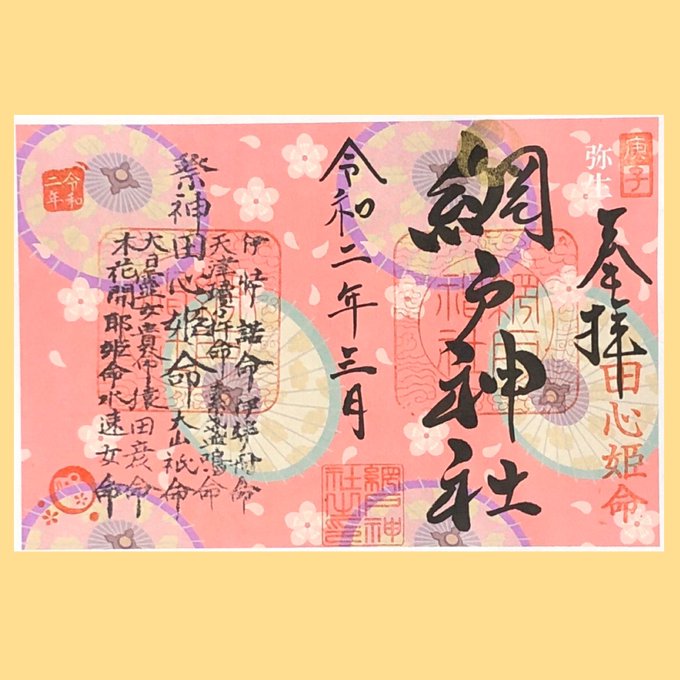 庚子
弥生
奉拝
田心姫命
網戸神社
網戸神社
令和二年三月
網戸神社之印
伊弉諾命 伊弉冊命
天津 命 素盞鳴命
祭神 田心姫命 大山祇命
大日孁女貴命 猿田彦命
木花開耶姫命 水速女命
令和二年